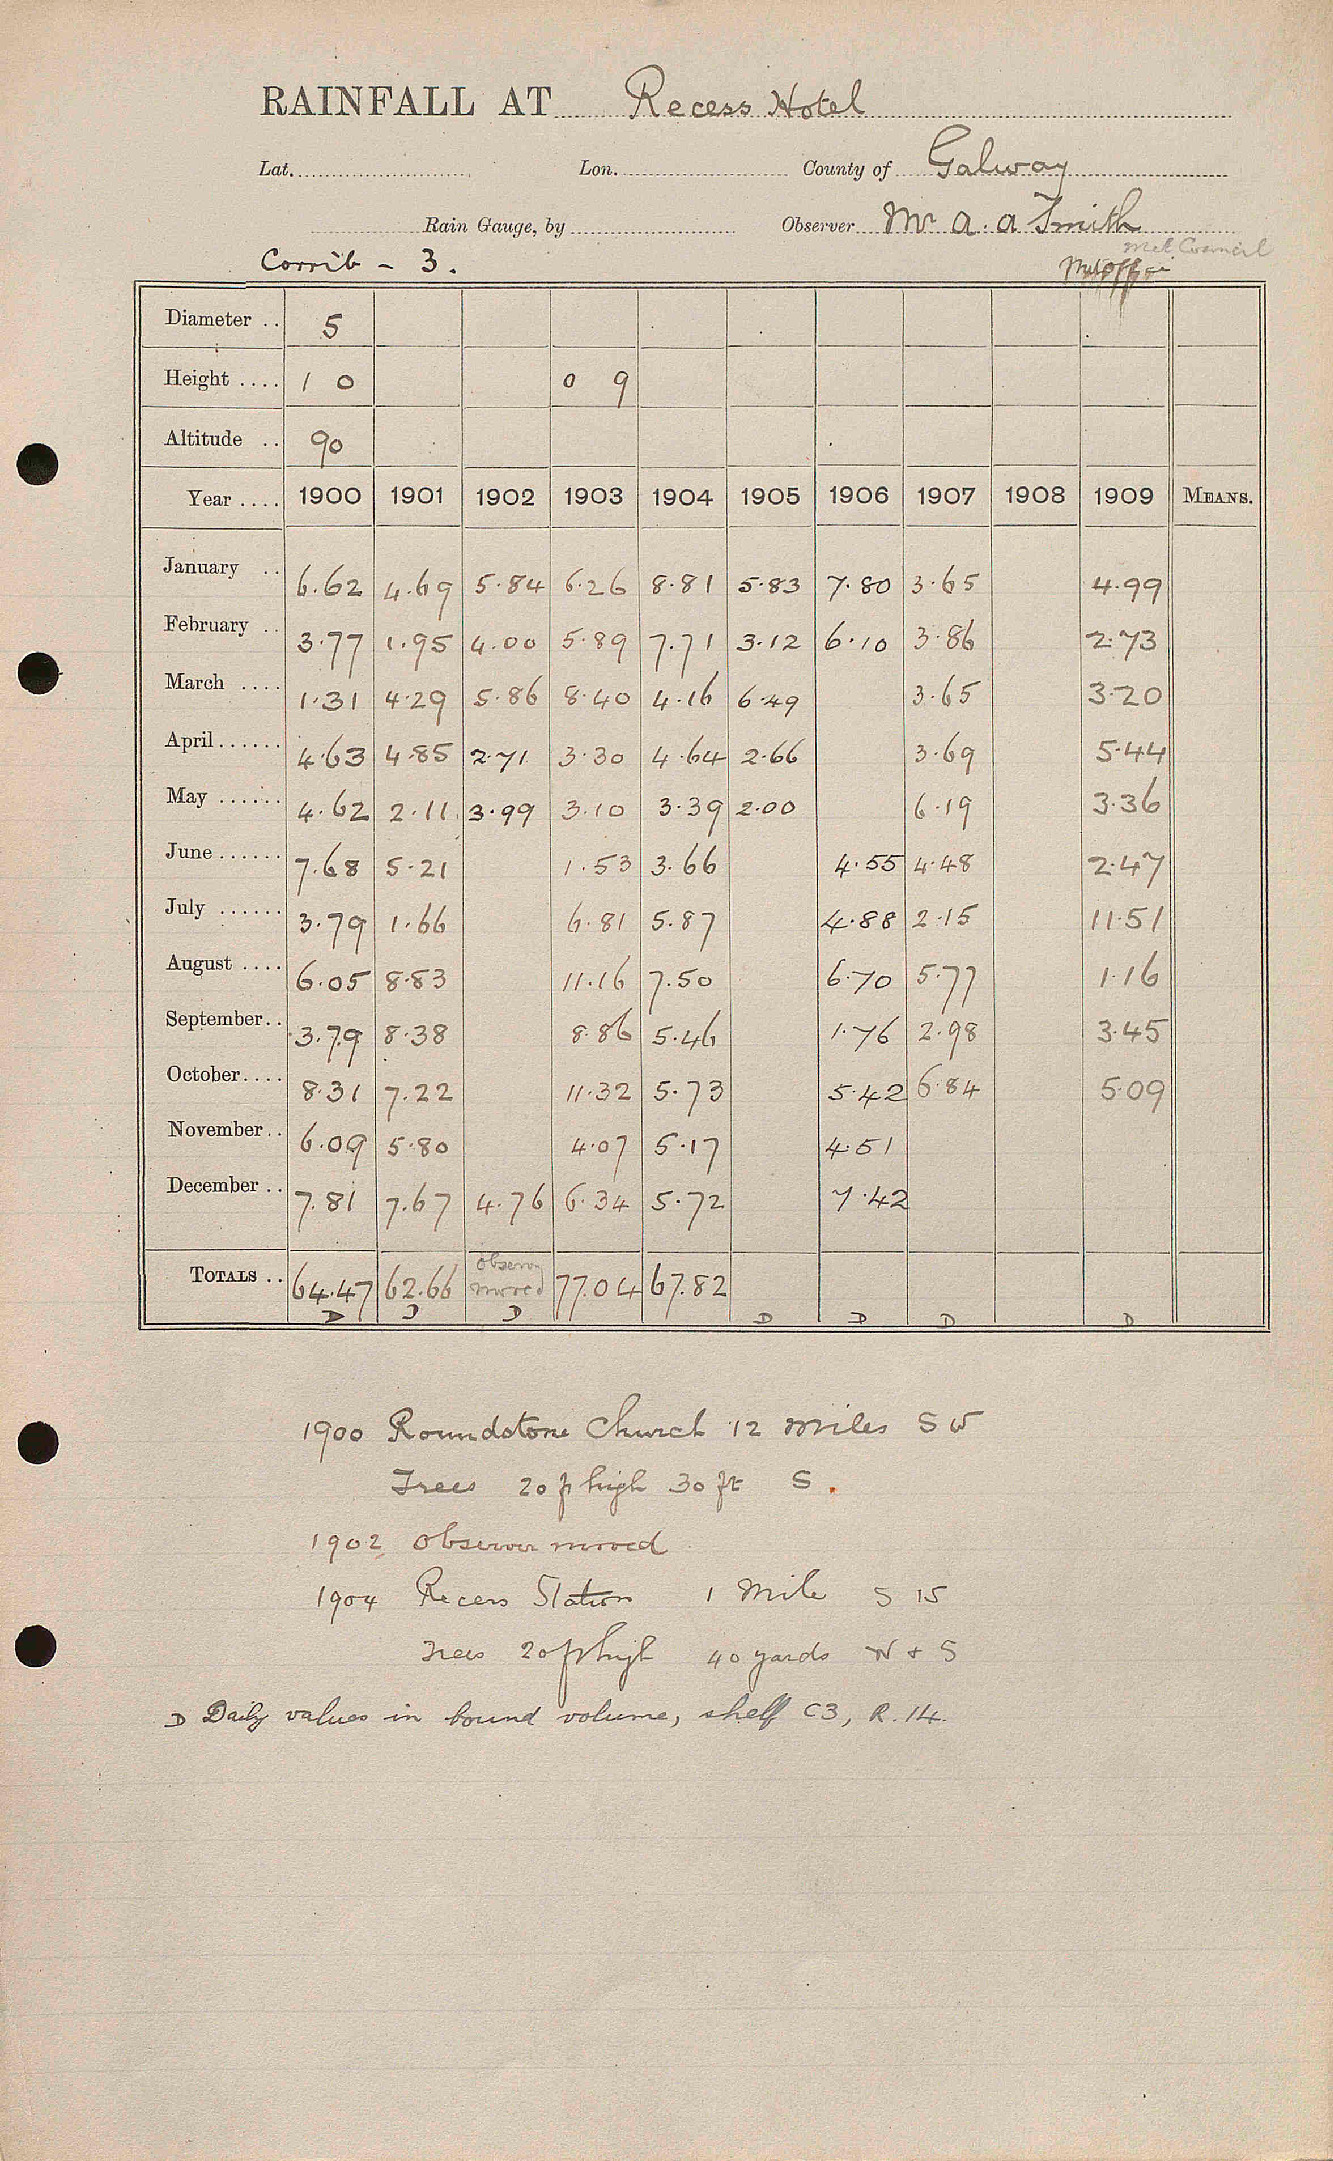 RAINFALL AT Recess Hotel
Lat. Lon. County of Galway
Rain Gauge, by Observer Mr A. A Smith
Met Council
Corrib - 3.
Diameter .. 5
Height .... 1 0 0 9
Altitude .. 90
Year .... 1900 1901 1902 1903 1904 1905 1906 1907 1908 1909 MEANS.
January .. 6.62 4.69 5.84 6.26 8.81 5.83 7.80 3.65 4.99
February .. 3.77 1.95 4.00 5.89 7.71 3.12 6.10 3.86 2.73
March .... 1.31 4.29 5.86 8.40 4.16 6.49 3.65 3.20
April...... 4.63 4.85 2.71 3.30 4.64 2.66 3.69 5.44
May ...... 4.62 2.11 3.99 3.10 3.39 2.00 6.19 3.36
June...... 7.68 5.21 1.53 3.66 4.55 4.48 2.47
July ...... 3.79 1.66 6.81 5.87 4.88 2.15 11.51
August .... 6.05 8.83 11.16 7.50 6.70 5.77 1.16
September.. 3.79 8.38 8.86 5.46 1.76 2.98 3.45
October.... 8.31 7.22 11.32 5.73 5.42 6.84 5.09
November.. 6.09 5.80 4.07 5.17 4.51
December .. 7.81 7.67 4.76 6.34 5.72 7.42
TOTALS .. 64.47 62.66 Observer moved 77.04 67.82
D D D D D D D
1900 Roundstone Church 12 miles SW
Trees 20 ft high 30 ft S.
1902 Observer moved
1904 Recess Station 1 Mile S 15
Trees 20 ft high 40 yards N + S
D Daily values in bound volume, shelf C3, R.14.